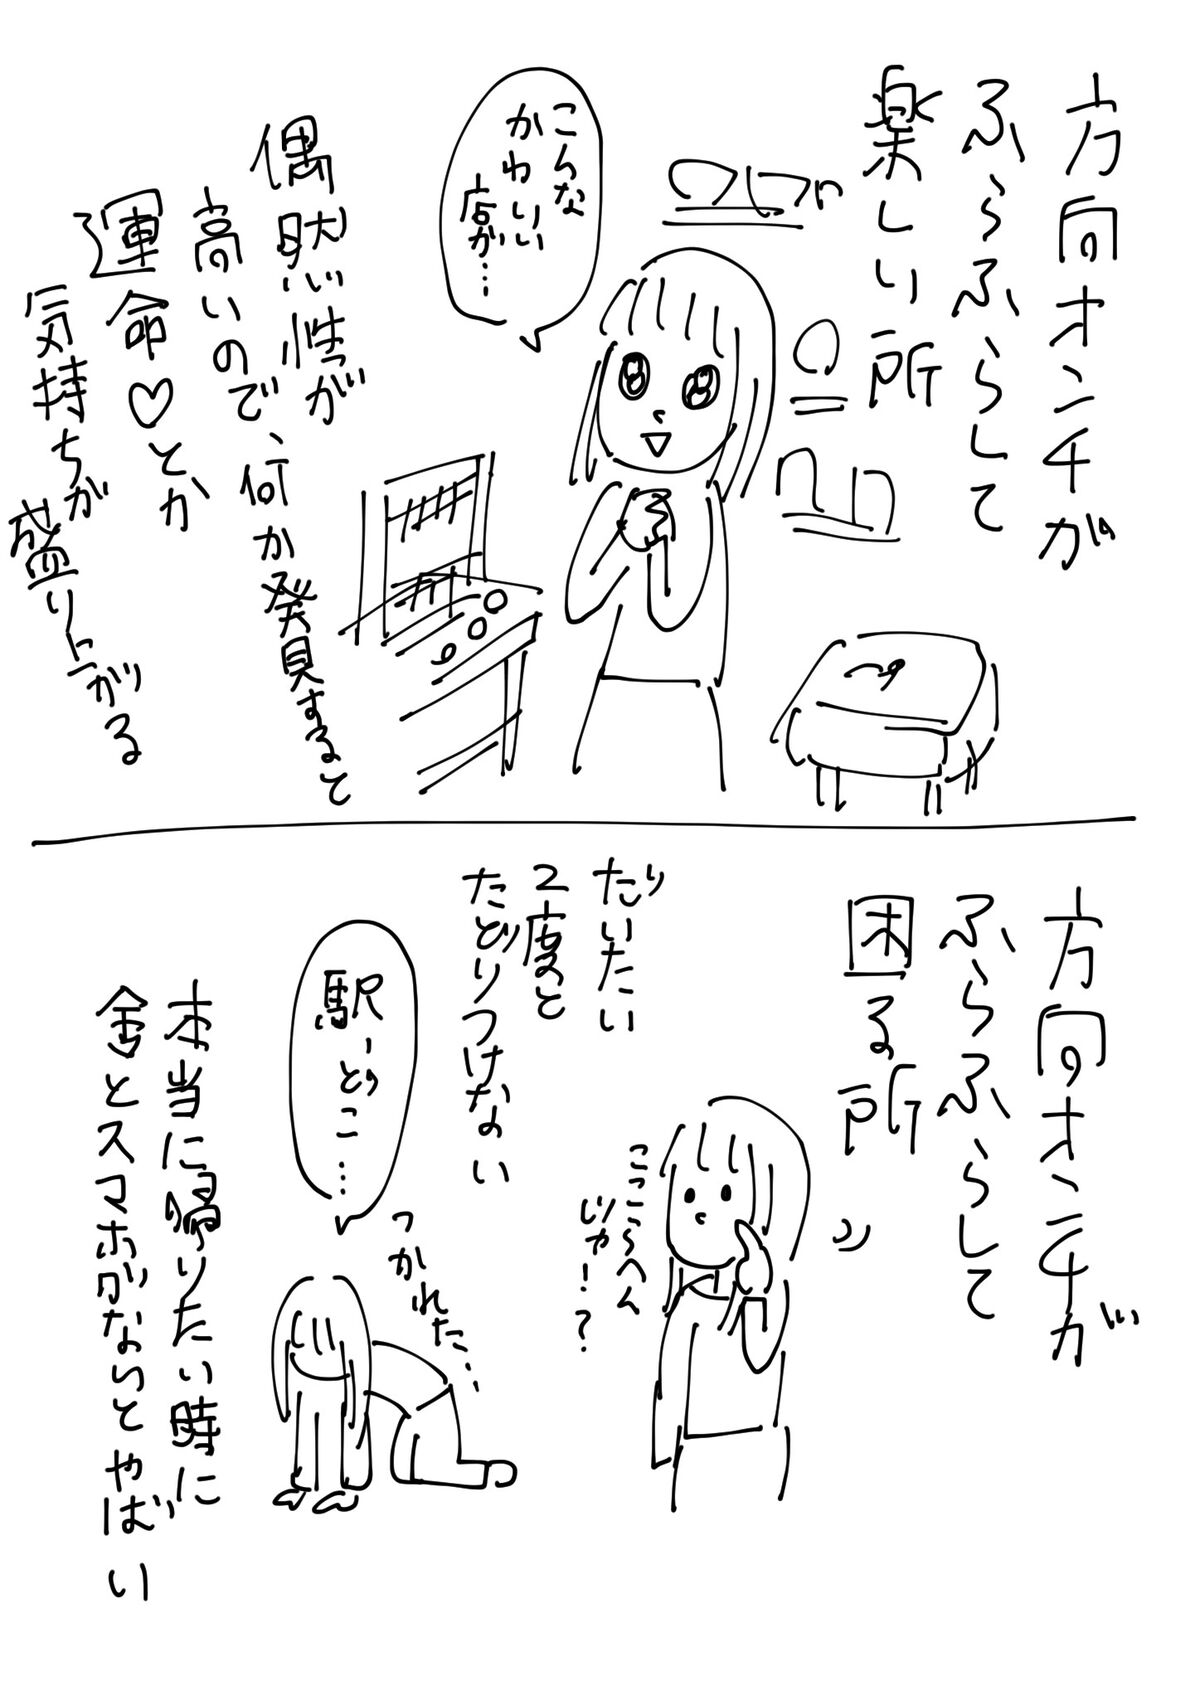 方向オンチが
ふらふらして
楽しい所
こんな
かわいい
店が…
偶然性が
高いので、何か発見すると
運命♡とか
気持ちが
盛り上がる
方向オンチが
ふらふらして
困る所
だいたい
2度と
たどりつけない
ここらへん
じゃ!?
駅、どこ…
つかれた…
本当に帰りたい時に
金とスマホがないとやばい